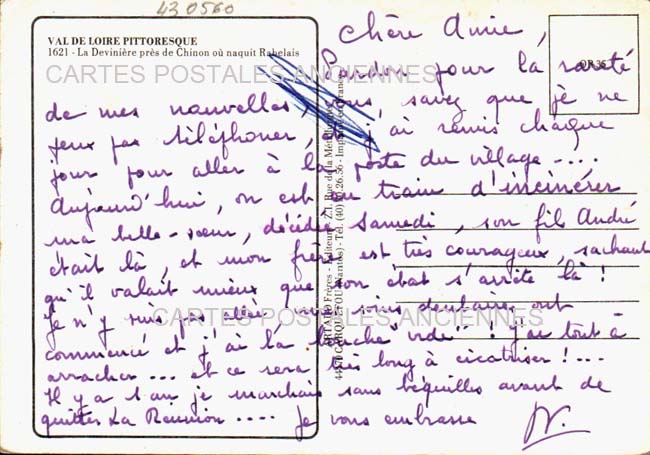 43 0560
VAL DE LOIRE PITTORESQUE
1621 - La Devinière près de Chinon où naquit Rabelais
CARTES POSTALES ANCIENNES
Chère Amie,
Pardon pour la rareté
de mes nouvelles, vous savez que je ne
peux pas téléphoner, et j'ai remis chaque
jour pour aller à la poste du village ....
Aujourd'hui, on est en train d'incinérer
ma belle-sœur, décédée samedi, son fils André
était là, et mon frère est très courageux, sachant
qu'il valait mieux que son état s'arrête là !
Je n'y suis pas allée, mes soins dentaires ont
commencé et j'ai la bouche "vide" ! j'ai tout à
arracher ... et ce sera très long à cicatriser !...
Il y a 1 an je marchais sans béquilles avant de
quitter La Réunion .... Je vous embrasse
CARTES POSTALES ANCIENNES
Frères - Editeurs - Z.I. Rue de la
44 CARQUEFOU (Nantes) - Tél. (40)